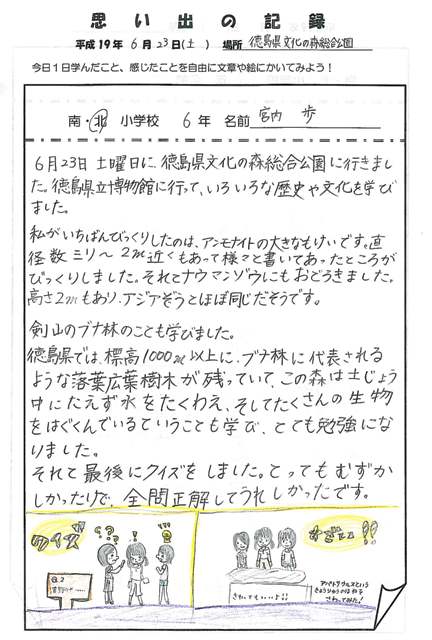 思い出の記録
平成19年 6月23日(土) 場所 徳島県文化の森総合公園
今日1日学んだこと、感じたことを自由に文章や絵にかいてみよう!
南・北 小学校 6年 名前 宮内 歩
6月23日 土曜日に徳島県文化の森総合公園に行きまし
た。徳島県立博物館に行って、いろいろな歴史や文化を学び
ました。
私がいちばんびっくりしたのは、アンモナイトの大きなもけいです。直
径数ミリ～2m近くもあって様々と書いてあったところが
びっくりしました。それとナウマンゾウにもおどろきました。
高さ2mもあり、アジアぞうとほぼ同じだそうです。
剣山のブナ林のことも学びました。
徳島県では、標高1000m以上に、ブナ林に代表される
ような落葉広葉樹木が残っていて、この森は土じょう
中にたえず水をたくわえ、そしてたくさんの生物
をはぐくんでいるということも学び、とても勉強にな
りました。
それと最後にクイズをしました。とってもむずか
しかったけど、全問正解してうれしかったです。
クイズ
???!
Q.2
さわってもいいよ!!
アパトサウルスという
きょうりゅうのほねを
さわってみた!